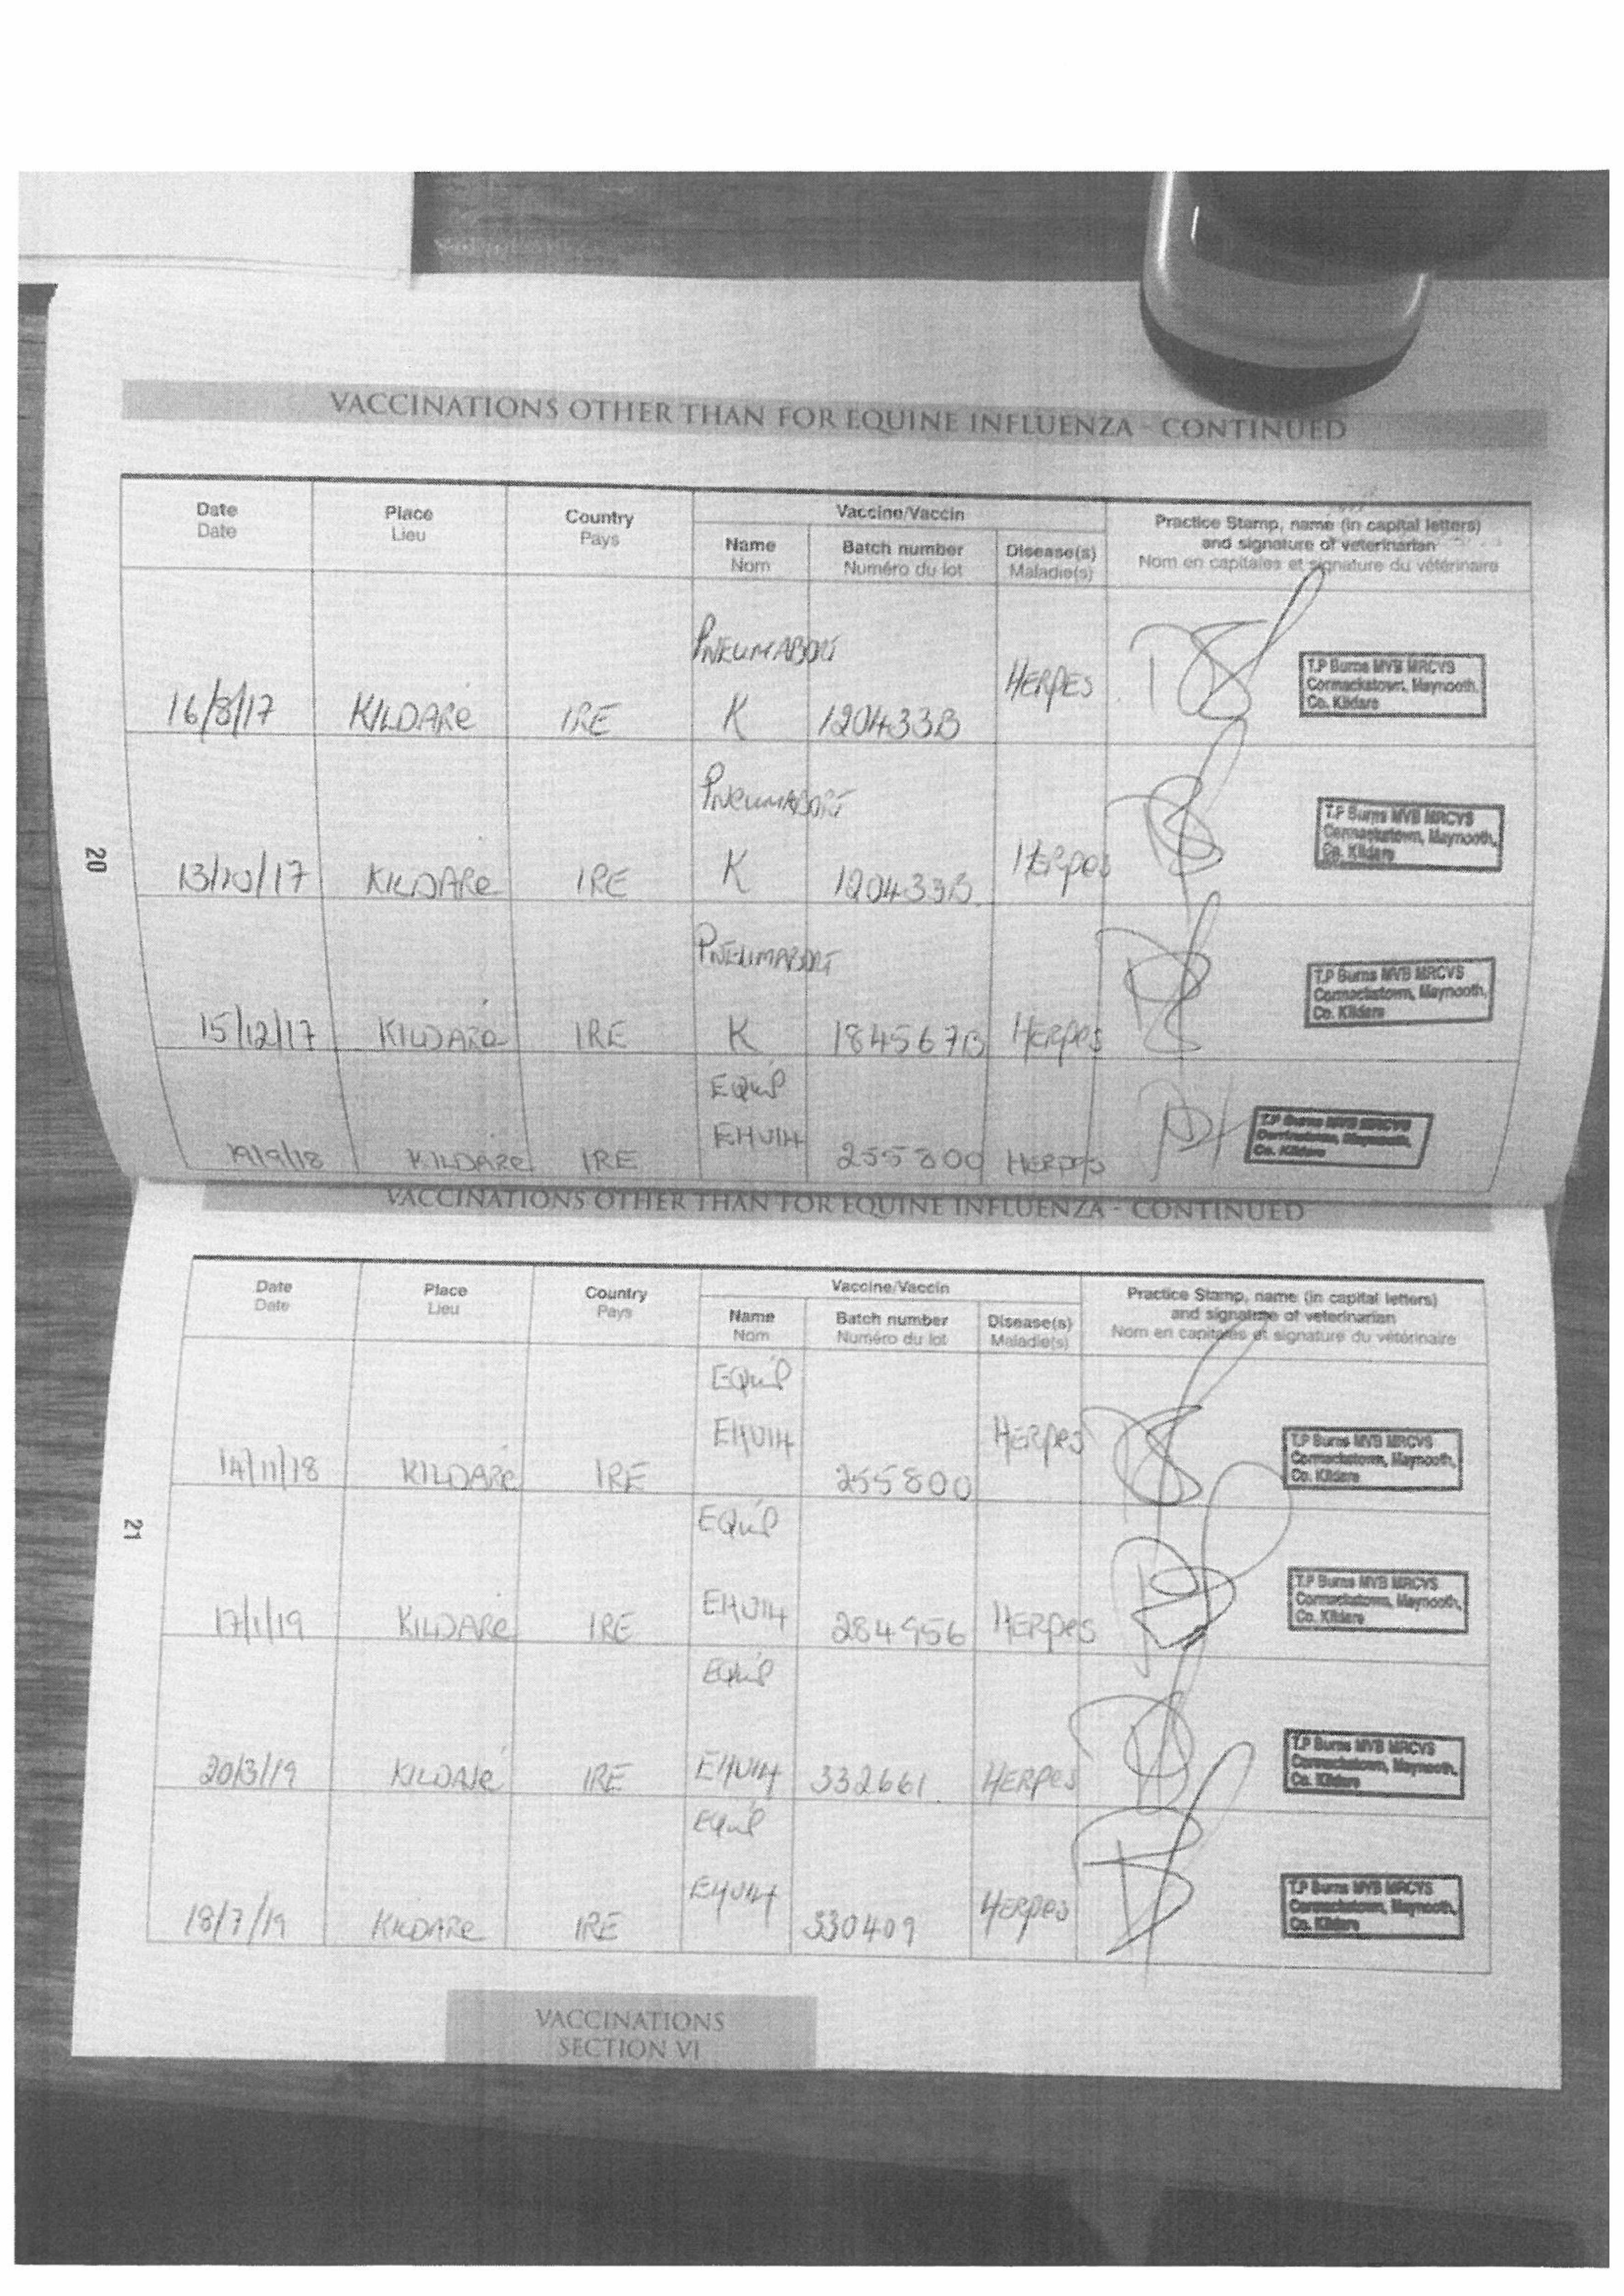 VACCINATIONS OTHER THAN FOR EQUINE INFLUENZA - CONTINUED
Date Place Country Vaccine/Vaccin Practice Stamp, name (in capital letters)
Date Lieu Pays and signature of veterinarian
Name Batch number Disease(s) Nom en capitales et signature du vétérinaire
Nom Numéro du lot Maladie(s)
PNEUMABORT
16/8/17 KILDARE IRE K 120433B HERPES
T.P Burns MVB MRCVS
Cormackstown, Maynooth,
Co. Kildare
PNEUMABORT
13/10/17 KILDARE IRE K 120433B HERPES
T.P Burns MVB MRCVS
Cormackstown, Maynooth,
Co. Kildare
20
PNEUMABORT
15/12/17 KILDARE IRE K 184567B HERPES
T.P Burns MVB MRCVS
Cormackstown, Maynooth,
Co. Kildare
EQUIP
19/9/18 KILDARE IRE EHV14 255800 HERPES
T.P Burns MVB MRCVS
Maynooth,
Co. Kildare
VACCINATIONS OTHER THAN FOR EQUINE INFLUENZA - CONTINUED
Date Place Country Vaccine/Vaccin Practice Stamp, name (in capital letters)
Date Lieu Pays and signature of veterinarian
Name Batch number Disease(s) Nom en capitales et signature du vétérinaire
Nom Numéro du lot Maladie(s)
EQUIP
14/11/18 KILDARE IRE EHV14 255800 HERPES
T.P Burns MVB MRCVS
Cormackstown, Maynooth,
Co. Kildare
21
EQUIP
17/1/19 KILDARE IRE EHV14 284956 HERPES
T.P Burns MVB MRCVS
Cormackstown, Maynooth,
Co. Kildare
EQUIP
20/3/19 KILDARE IRE EHV14 332661 HERPES
T.P Burns MVB MRCVS
Cormackstown, Maynooth,
Co. Kildare
EQUIP
18/7/19 KILDARE IRE EHV14 330409 HERPES
T.P Burns MVB MRCVS
Cormackstown, Maynooth,
Co. Kildare
VACCINATIONS
SECTION VI